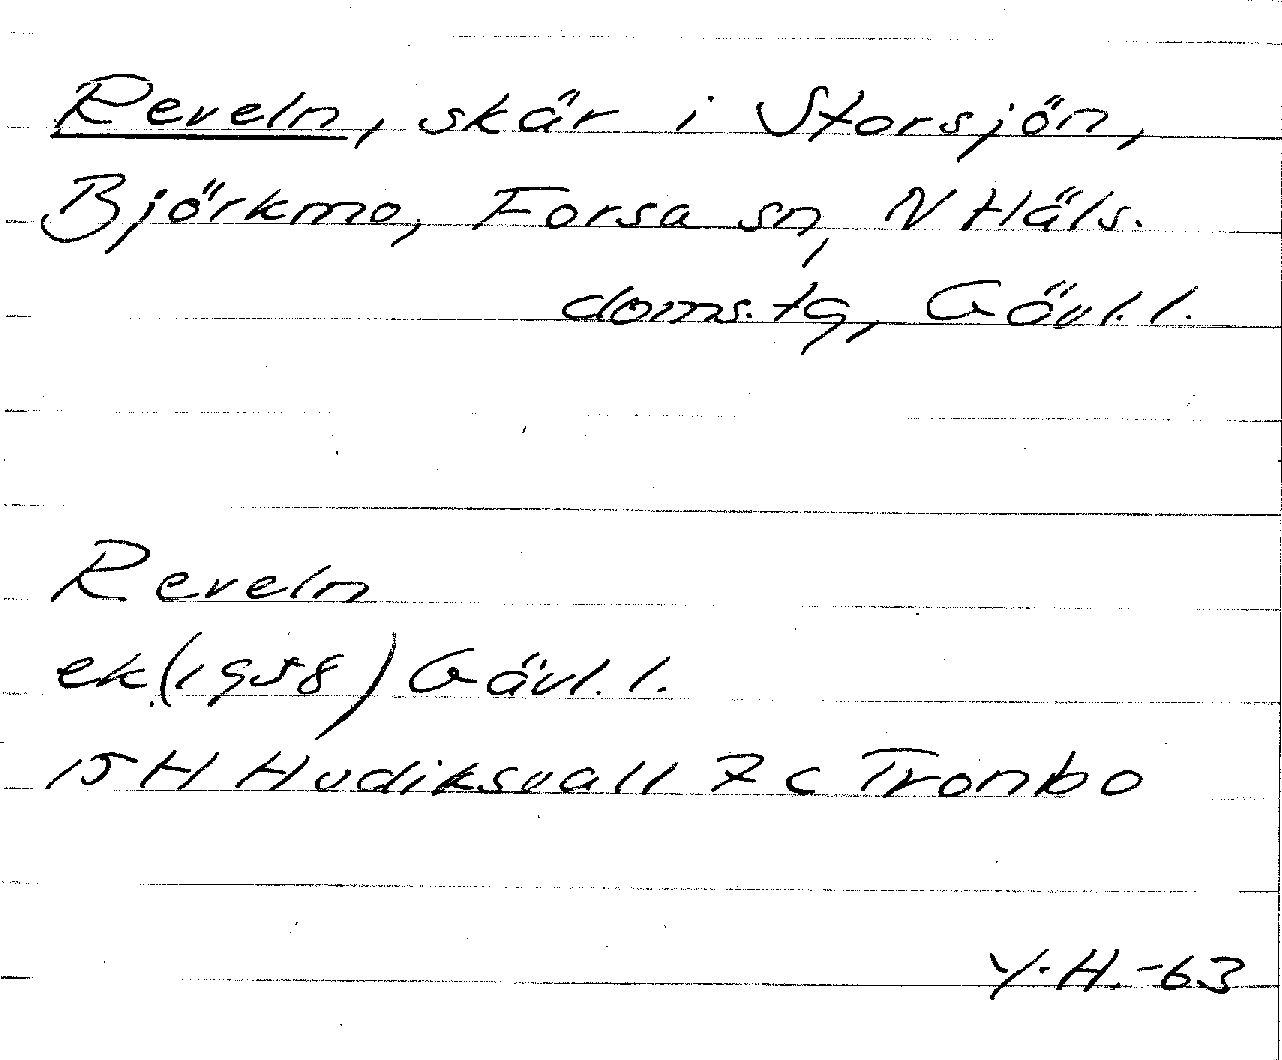 Reveln, skär i Storsjön,
Björkmo, Forsa sn, N Häls.
doms.tg, Gävl.l.
Reveln
ek(1958) Gävl.l.
15H Hudiksvall 7c Tronbo
Y.H.-63